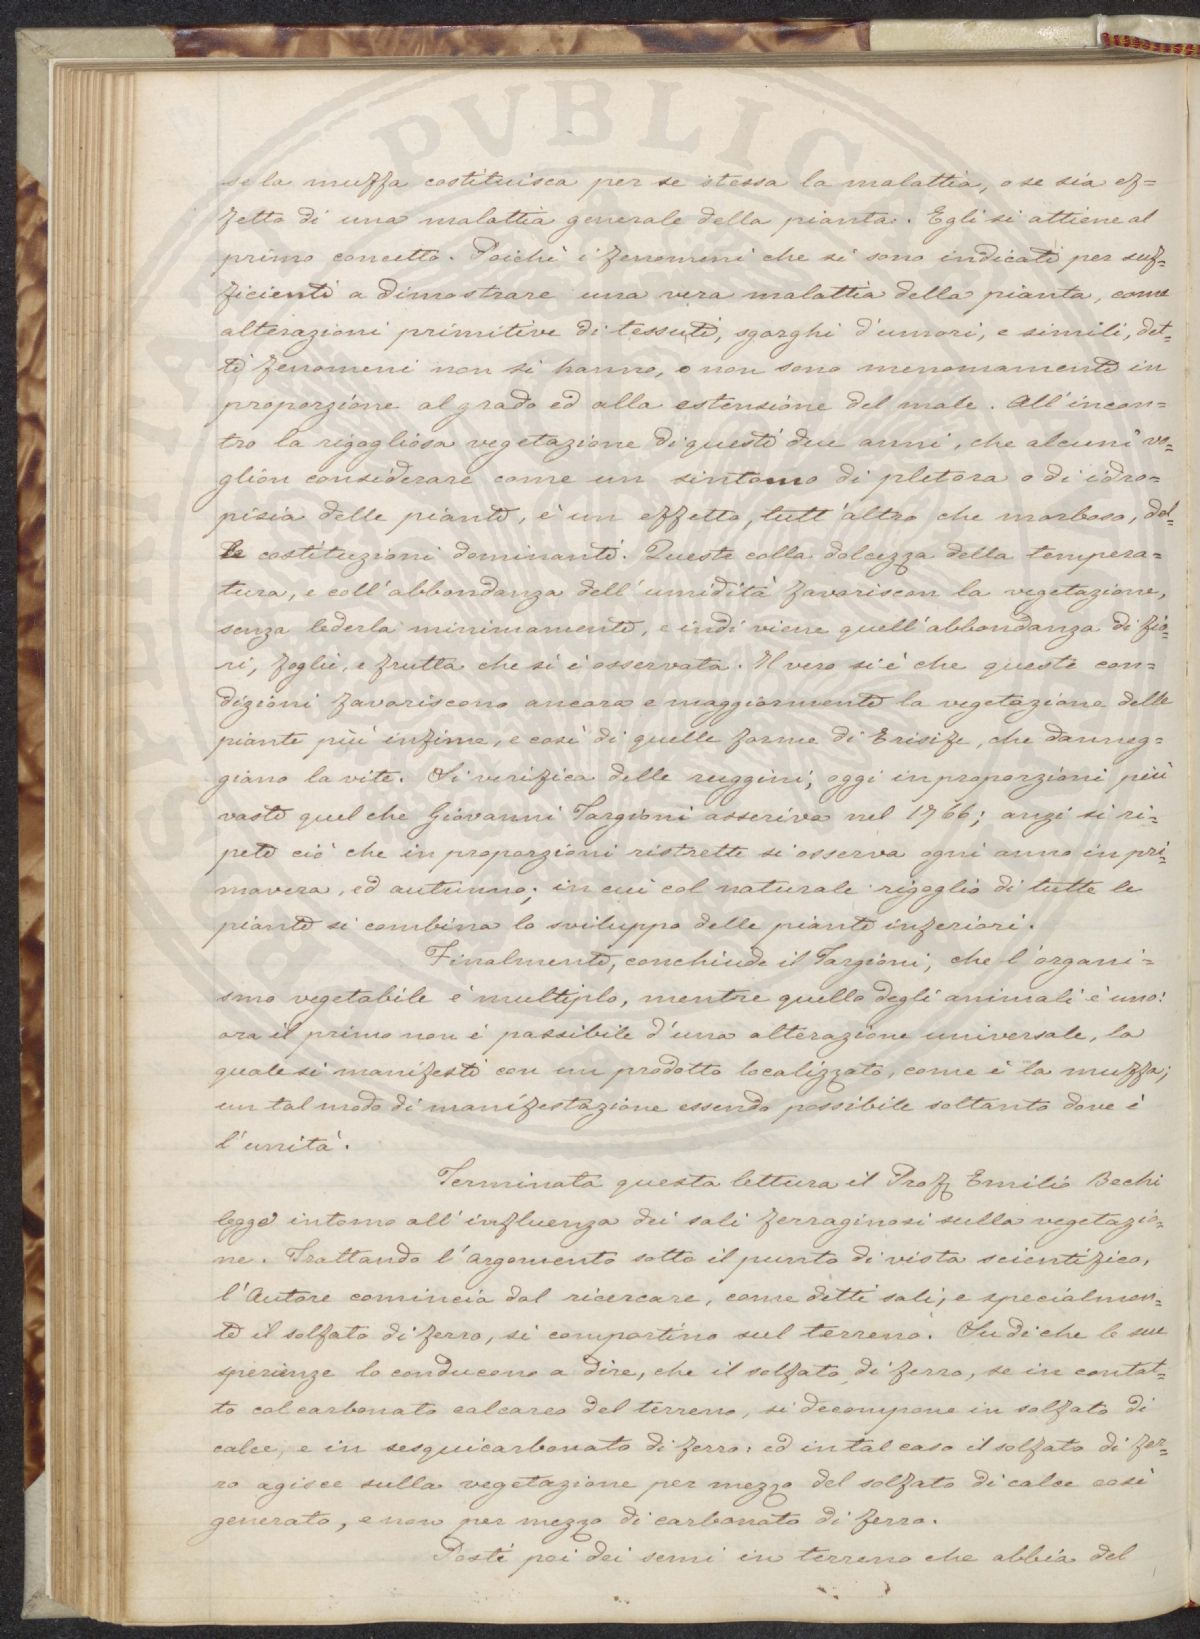 se la muffa costituisca per se stessa la malattia, o se sia ef=
fetto di una malattia generale della pianta. Egli si attiene al
primo concetto. Poichè i fenomeni che si sono indicati per suf=
ficienti a dimostrare una vera malattia della pianta, come
alterazioni primitive di tessuti, sgorghi d'umori, e simili, det=
ti fenomeni non si hanno, o non sono menomamente in
proporzione al grado ed alla estensione del male. All'incon=
tro la rigogliosa vegetazione di questi due anni, che alcuni vo=
glion considerare come un sintomo di pletora o di idro=
pisia delle piante, è un effetto, tutt'altro che morboso, del=
le costituzioni dominanti. Queste colla dolcezza della tempera=
tura, e coll'abbondanza dell'umidità favoriscon la vegetazione,
senza lederla minimamente, e indi viene quell'abbondanza di fio=
ri, foglie, e frutta che si è osservata. Il vero si è che queste con=
dizioni favoriscono ancora e maggiormente la vegetazione delle
piante più infime, e così di quelle forme di Erisife, che danneg=
giano la vite. Si verifica delle ruggini; oggi in proporzioni più
vaste quel che Giovanni Targioni asseriva nel 1766; anzi si ri=
pete ciò che in proporzioni ristrette si osserva ogni anno in pri=
mavera, ed autunno; in cui col naturale rigoglio di tutte le
piante si combina lo sviluppo delle piante inferiori.
Finalmente, conchiude il Targioni, che l'organi=
smo vegetabile è multiplo, mentre quello degli animali è uno:
ora il primo non è passibile d'una alterazione universale, la
quale si manifesti con un prodotto localizzato, come è la muffa;
un tal modo di manifestazione essendo possibile soltanto dove è
l'unità.
Terminata questa lettura il Prof Emilio Bechi
legge intorno all'influenza dei sali ferraginosi sulla vegetazio=
ne. Trattando l'argomento sotto il punto di vista scientifico,
l'Autore comincia dal ricercare, come detti sali, e specialmen=
te il solfato di ferro, si comportino sul terreno. Su di che le sue
sperienze lo conducono a dire, che il solfato di ferro, se in contat=
to col carbonato calcareo del terreno, si decompone in solfato di
calce, e in sesquicarbonato di ferro: ed in tal caso il solfato di fer=
ro agisce sulla vegetazione per mezzo del solfato di calce così
generato, e non per mezzo di carbonato di ferro.
Posti poi dei semi in terreno che abbia del